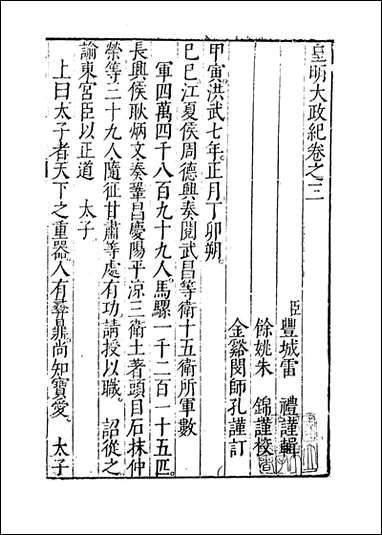 皇明大政紀卷之三
臣豐城雷　禮謹輯
餘姚朱　錦謹校
金谿閔師孔謹訂
甲寅洪武七年正月丁卯朔
己巳江夏侯周德興奏閱武昌等衛十五衛所軍數
軍四萬四千八百九十九人馬騾一千二百一十五匹
長興侯耿炳文奏鞏昌慶陽平凉三衛土著頭目石抹仲
榮等二十九人隨征甘肅等處有功請授以職　詔從之
諭東宮臣以正道　太子
上曰太子者天下之重器人有彝鼎尚知寶愛　太子